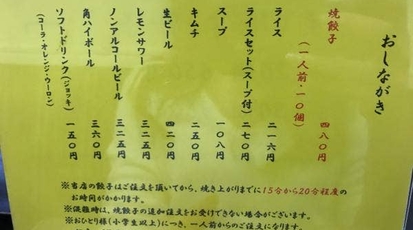 おしながき
焼餃子 四八〇円
(一人前・一〇個)
ライス 二一六円
ライスセット(スープ付) 二七〇円
スープ 一〇八円
キムチ 二五〇円
生ビール 四二〇円
レモンサワー 三二五円
ノンアルコールビール 三二五円
角ハイボール 三六〇円
ソフトドリンク(ジョッキ) 一五〇円
(コーラ・オレンジ・ウーロン)
※当店の餃子はご注文を頂いてから、焼き上がりまでに15分から20分程度の
お時間がかかります。
※混雑時は、焼餃子の追加注文をお受けできない場合がございます。
※おひとり様(小学生以上)につき、一人前からのご注文になります。